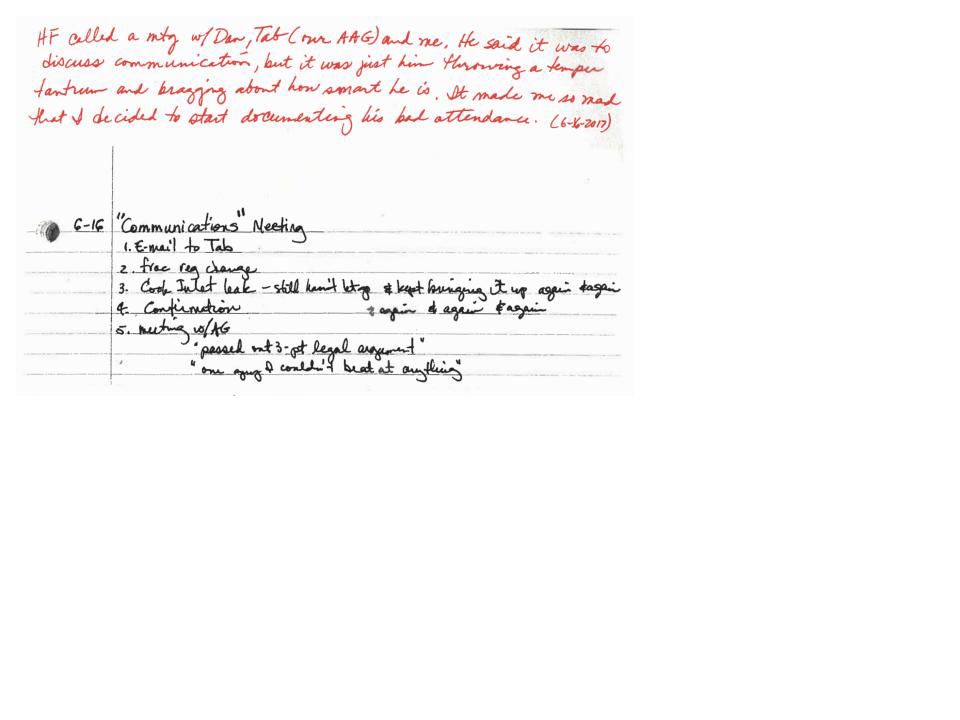 HF called a mtg w/ Dan, Tab (our AAG) and me. He said it was to
discuss communication, but it was just him throwing a temper
tantrum and bragging about how smart he is. It made me so mad
that I decided to start documenting his bad attendance. (6-16-2017)
6-16 "Communications" Meeting
1. E-mail to Tab
2. frac reg change
3. Cook Inlet leak – still hasn't let go & kept bringing it up again & again
& again & again & again
4. Confirmation
5. meeting w/AG
"passed out 3-pt legal argument"
"one guy I couldn't beat at anything"